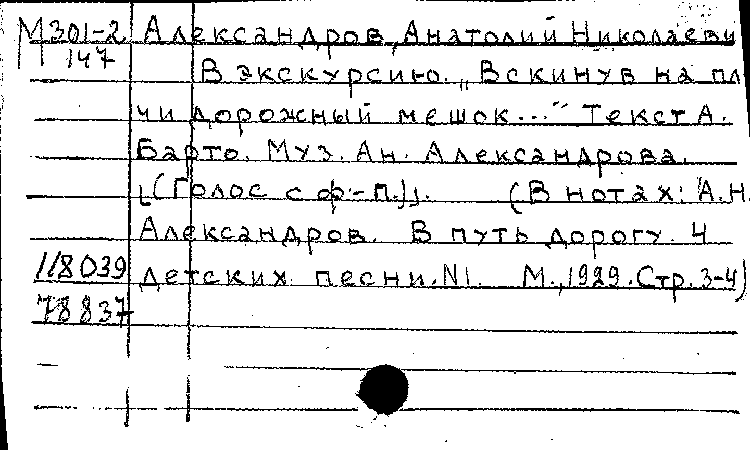 М301-2 Александров, Анатолий Николаеви
147 В экскурсию. „Вскинув на пл
чи дорожный мешок..." Текст А.
Барто. Муз. Ан. Александрова.
[(Голос с ф.-п.)]. (В нотах: А.Н.
Александров. В путь дорогу. 4
118039 детских песни. N1. М., 1929. Стр. 3-4)
78837